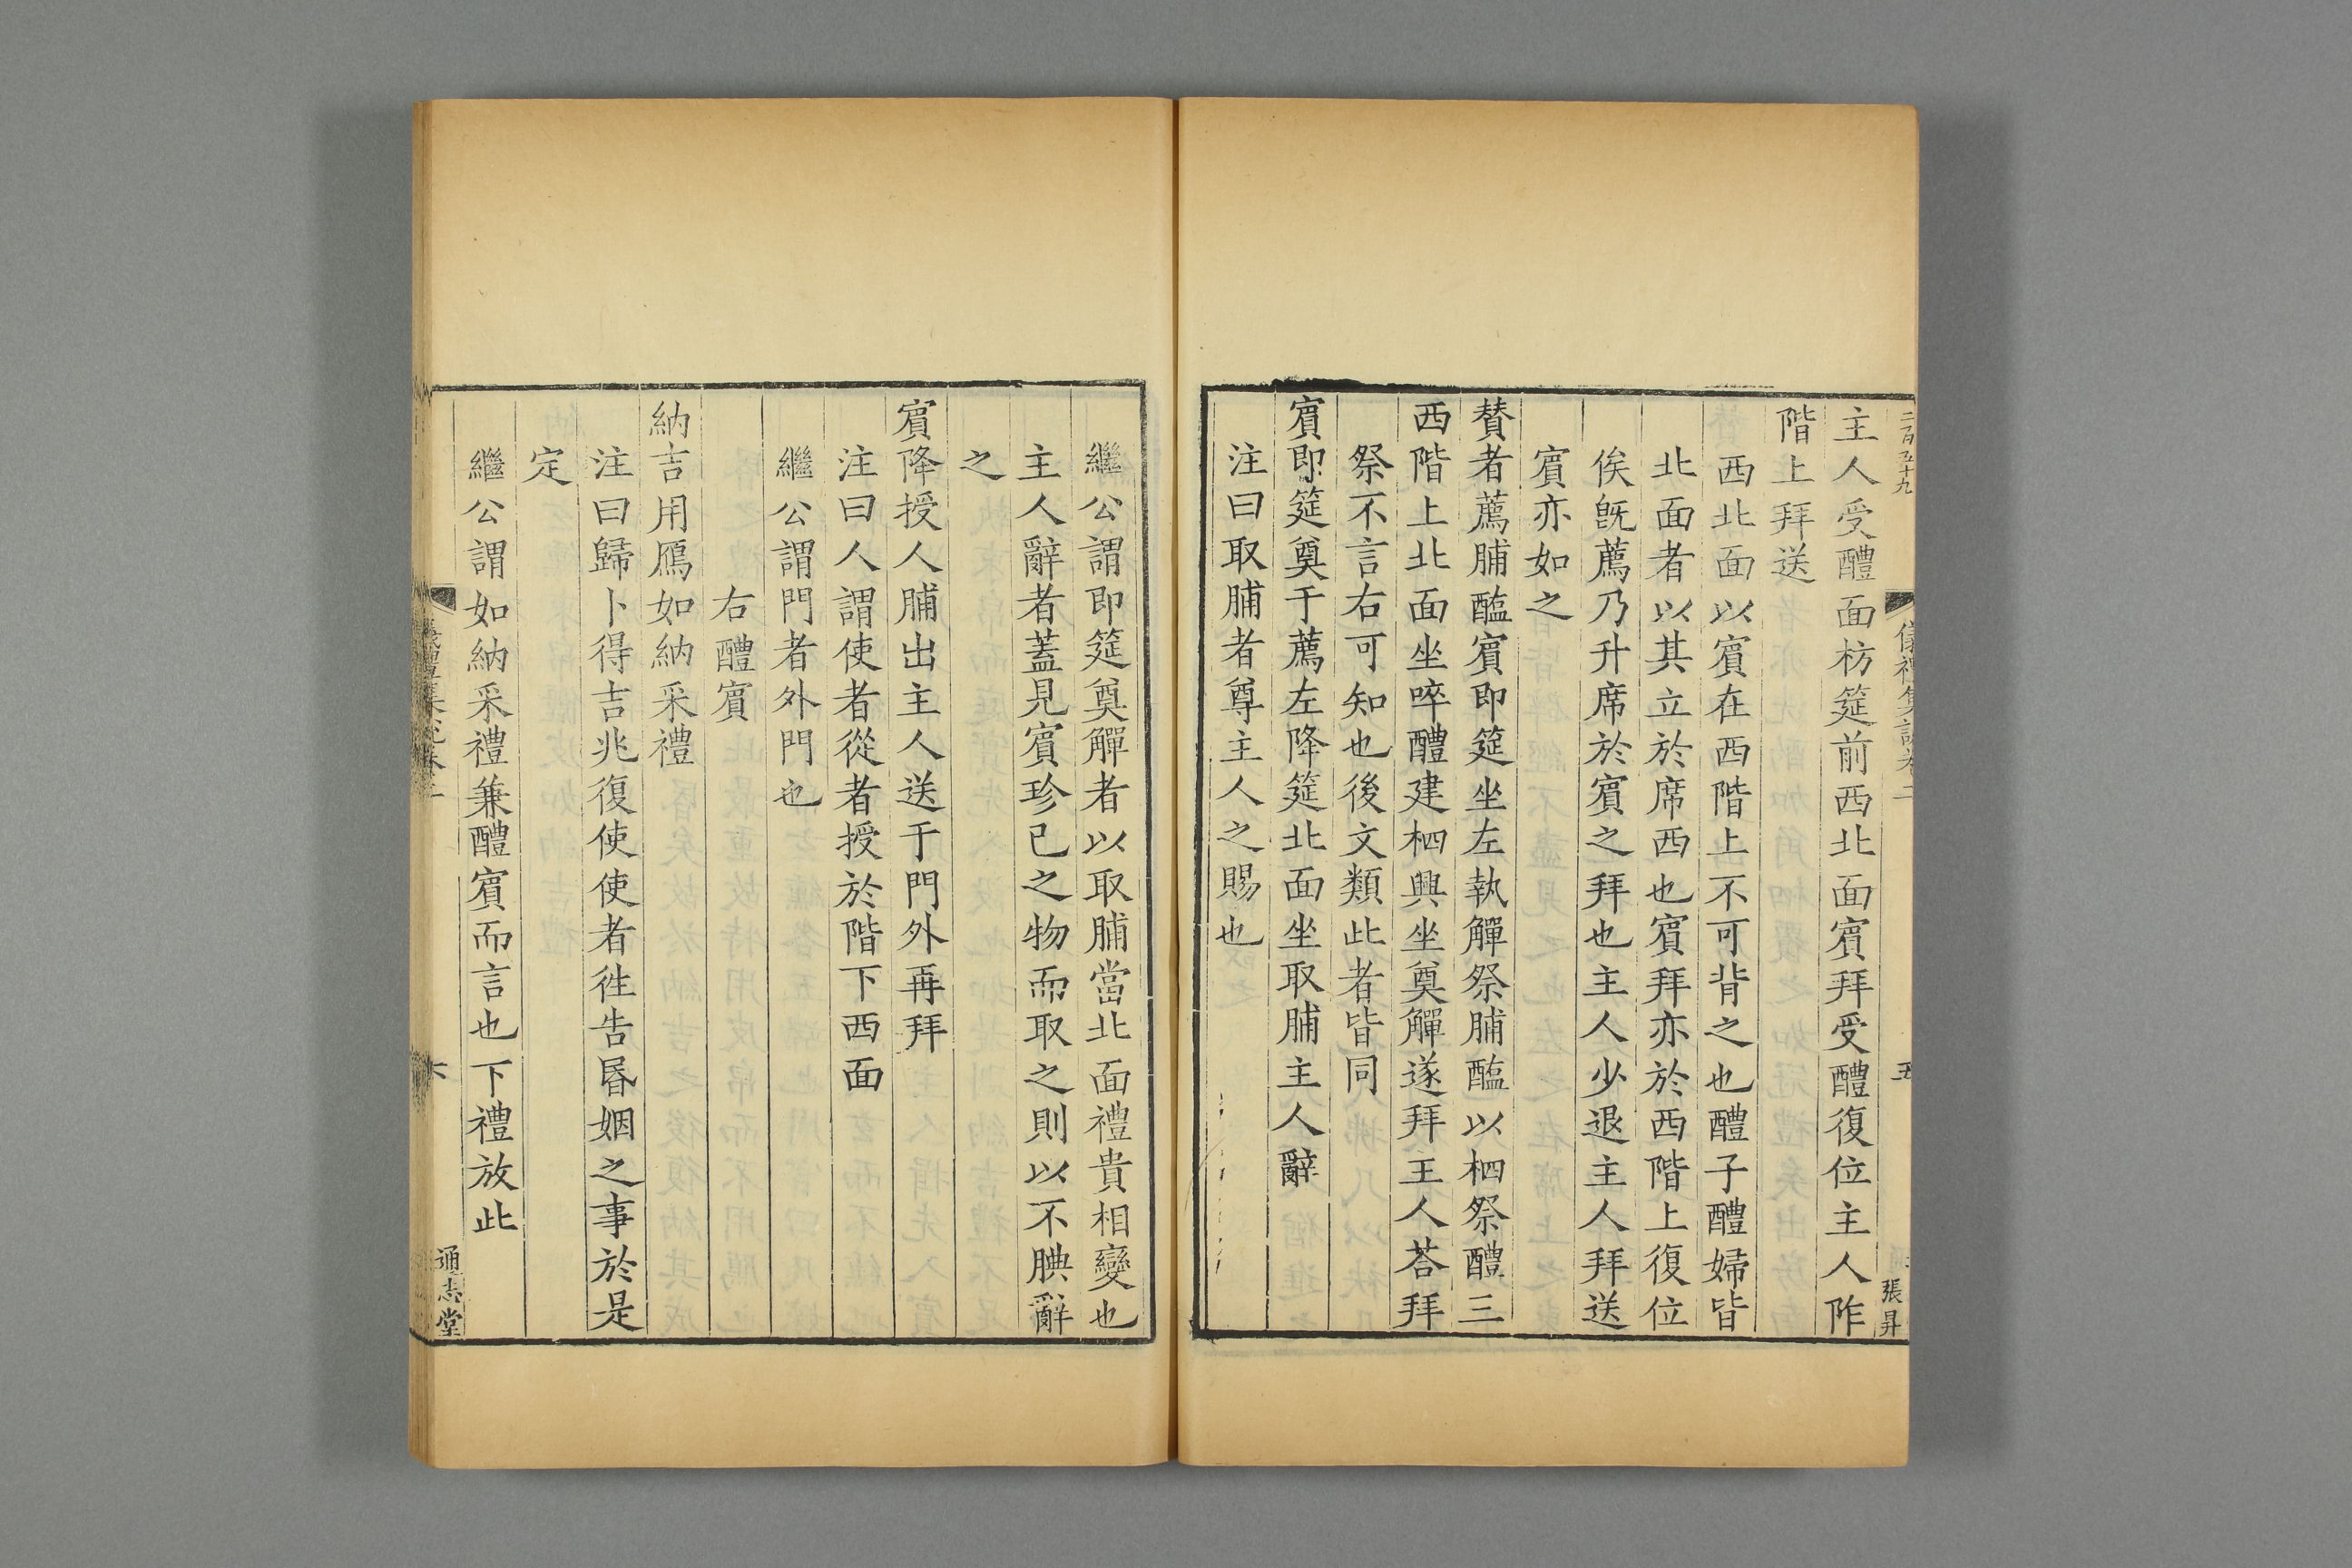 二百五十九
儀禮集說卷二
五
張昇
主人受醴面枋筵前西北面賓拜受醴復位主人阼
階上拜送
西北面以賓在西階上不可背之也醴子醴婦皆
北面者以其立於席西也賓拜亦於西階上復位
俟旣薦乃升席於賓之拜也主人少退主人拜送
賓亦如之
贊者薦脯醢賓即筵坐左執觶祭脯醢以柶祭醴三
西階上北面坐啐醴建柶興坐奠觶遂拜主人荅拜
祭不言右可知也後文類此者皆同
賓即筵奠于薦左降筵北面坐取脯主人辭
注曰取脯者尊主人之賜也
繼公謂即筵奠觶者以取脯當北面禮貴相變也
主人辭者蓋見賓珍已之物而取之則以不腆辭
之
賓降授人脯出主人送于門外再拜
注曰人謂使者從者授於階下西面
繼公謂門者外門也
右醴賓
納吉用鴈如納采禮
注曰歸卜得吉兆復使使者徃告昬姻之事於是
定
繼公謂如納采禮兼醴賓而言也下禮放此
六
通志堂